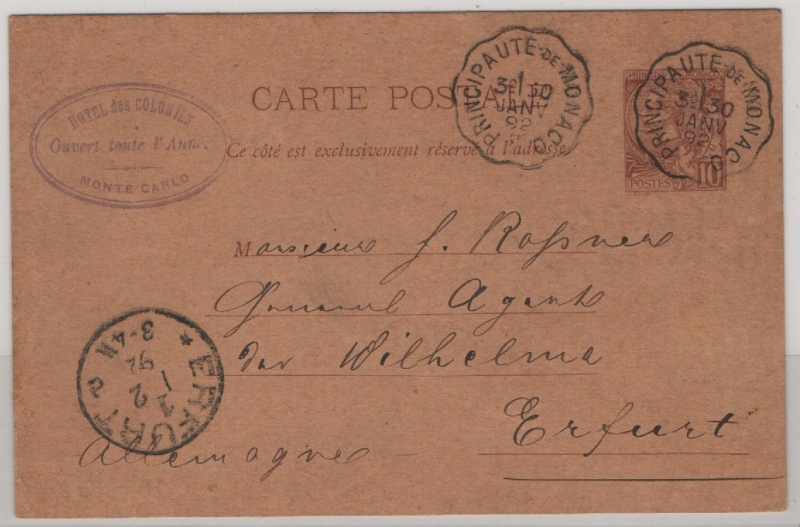 HOTEL des COLONIES
Ouvert toute l'Année
MONTE CARLO
CARTE POSTALE
Ce côté est exclusivement réservé à l'adresse
PRINCIPAUTÉ DE MONACO
3E 30
JANV
92
PRINCIPAUTÉ DE MONACO
3E 30
JANV
92
POSTES
10
Monsieur J. Roßner
General Agent
der Wilhelma
Erfurt
Allemagne
* ERFURT
1 2
92
3-4N